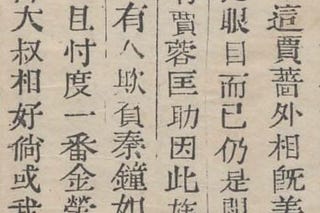 這賈薔外相既美
眼目而已仍是
賈蓉匡助因此
有人欺負秦鐘如
且忖度一番金榮
大叔相好倘或我